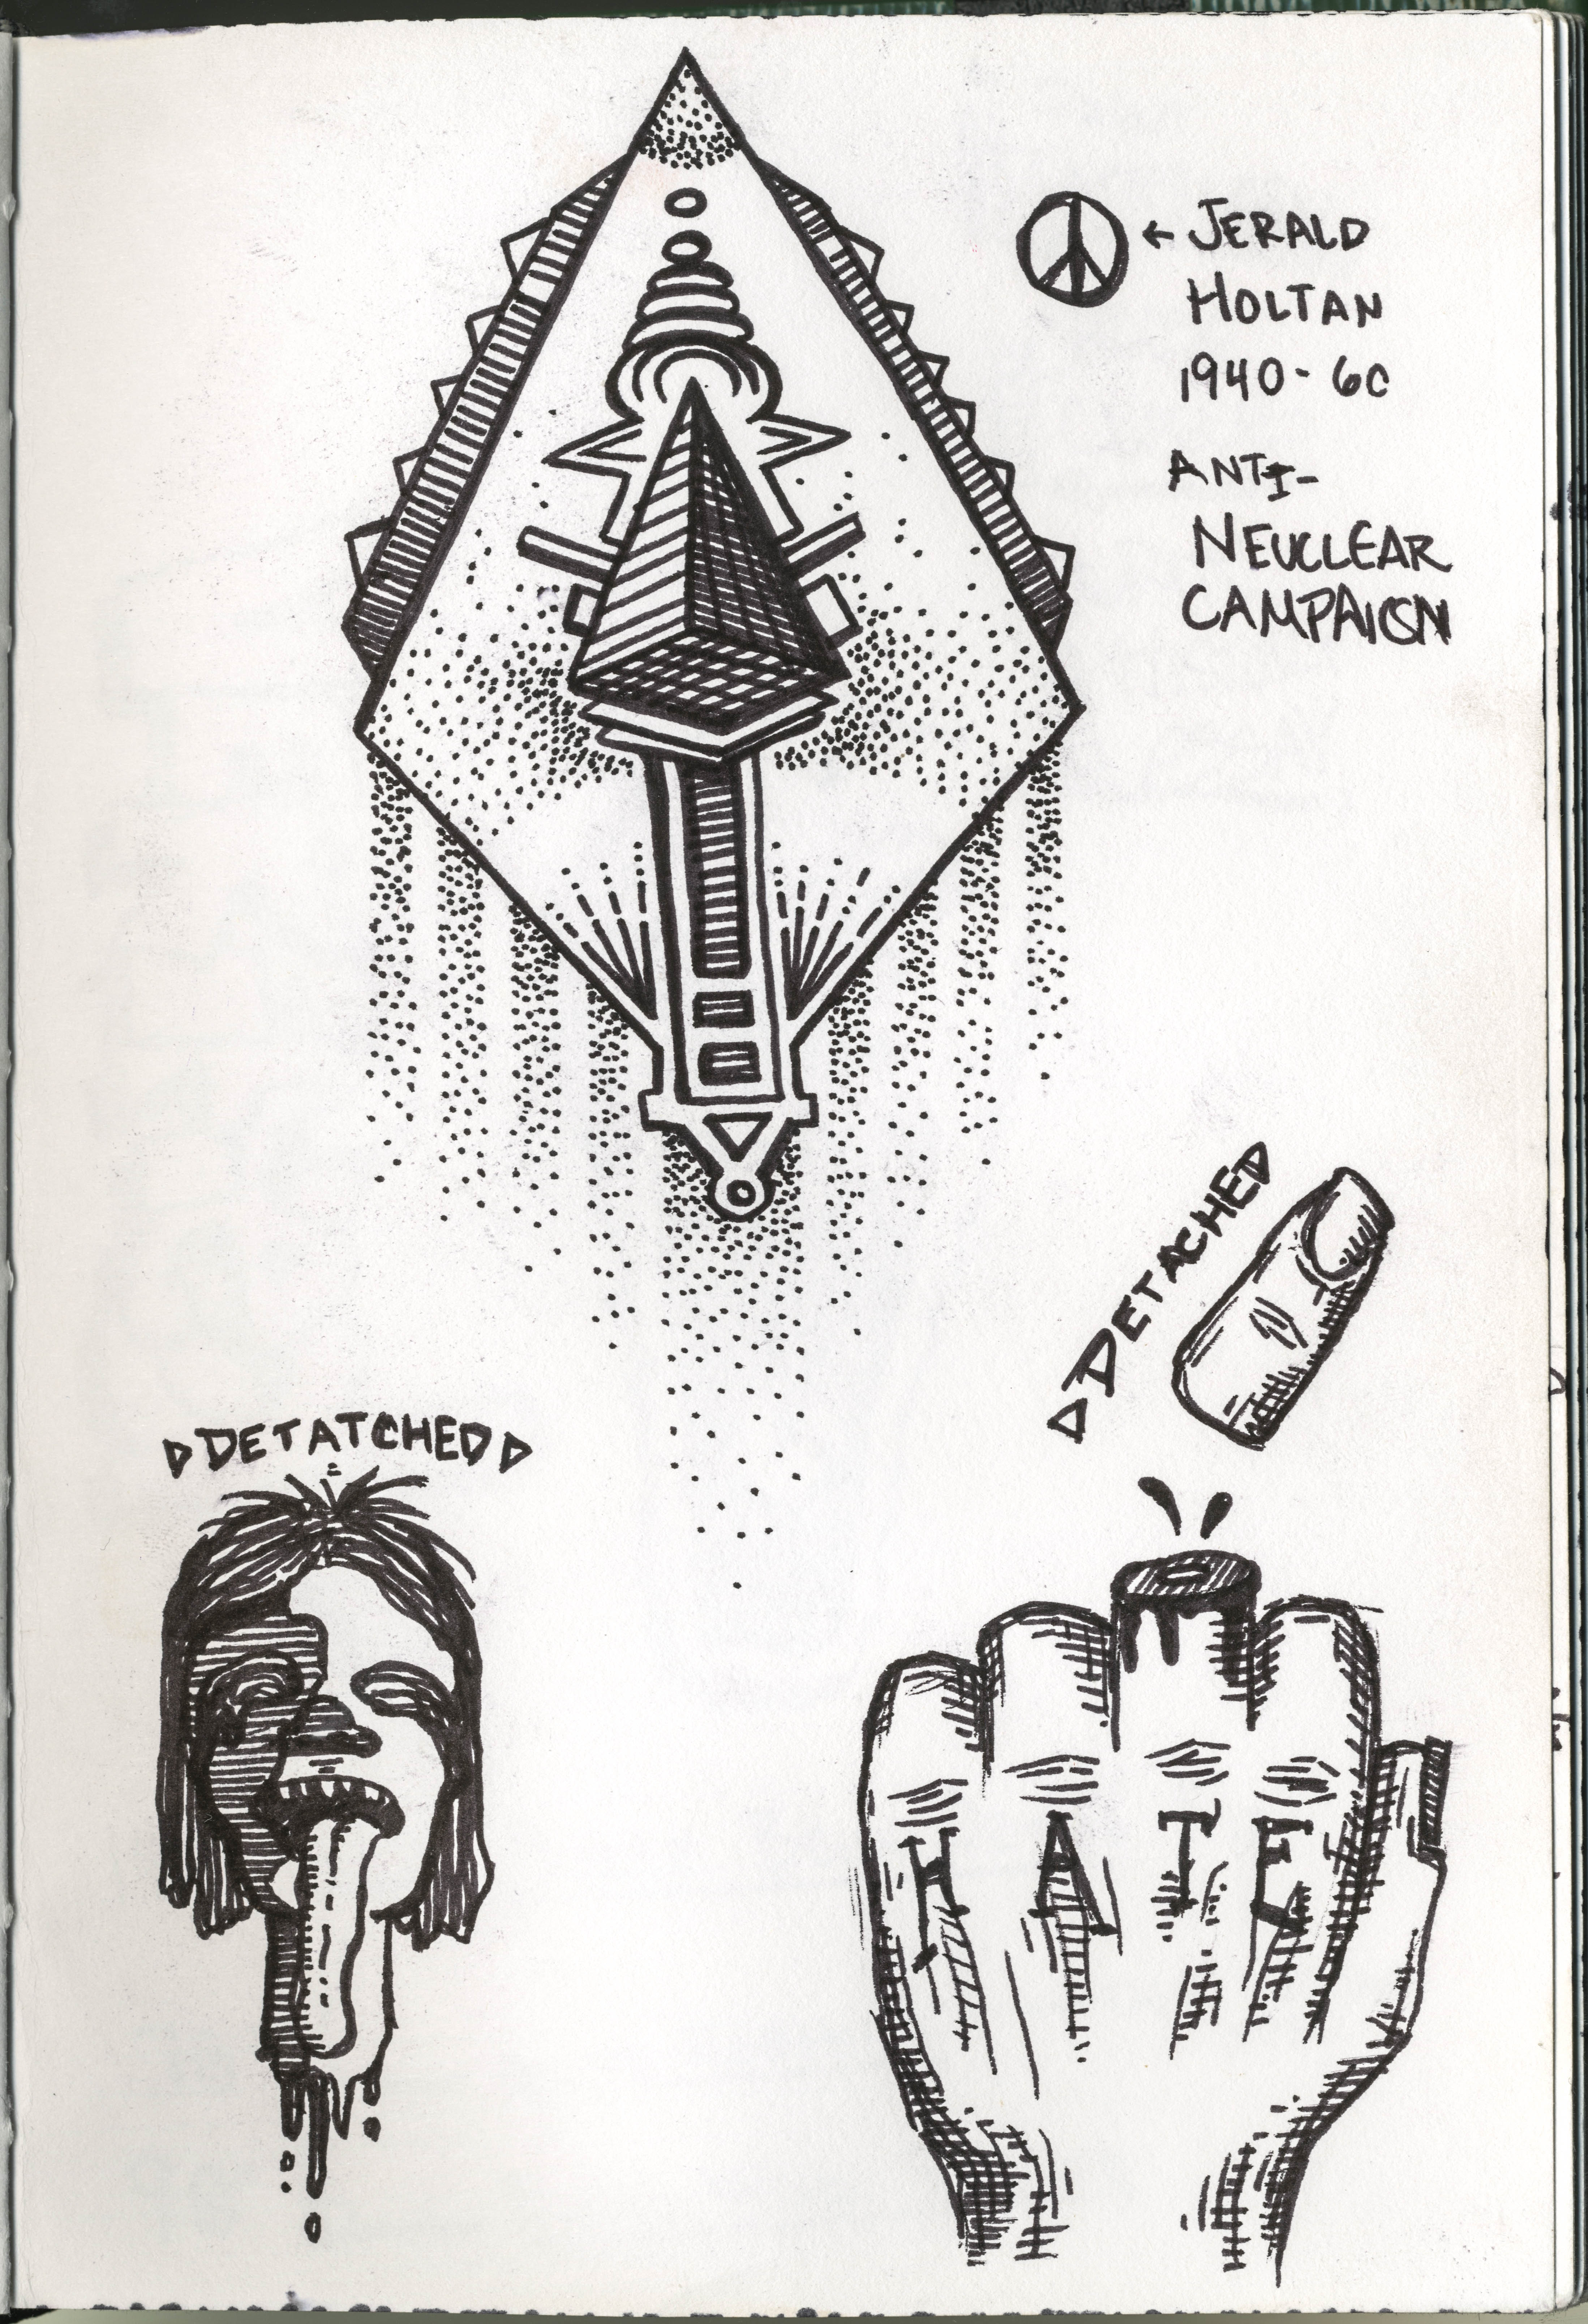 ← JERALD
HOLTAN
1940-60
ANTI-
NEUCLEAR
CAMPAIGN
DETACHED
DETATCHED
HATE